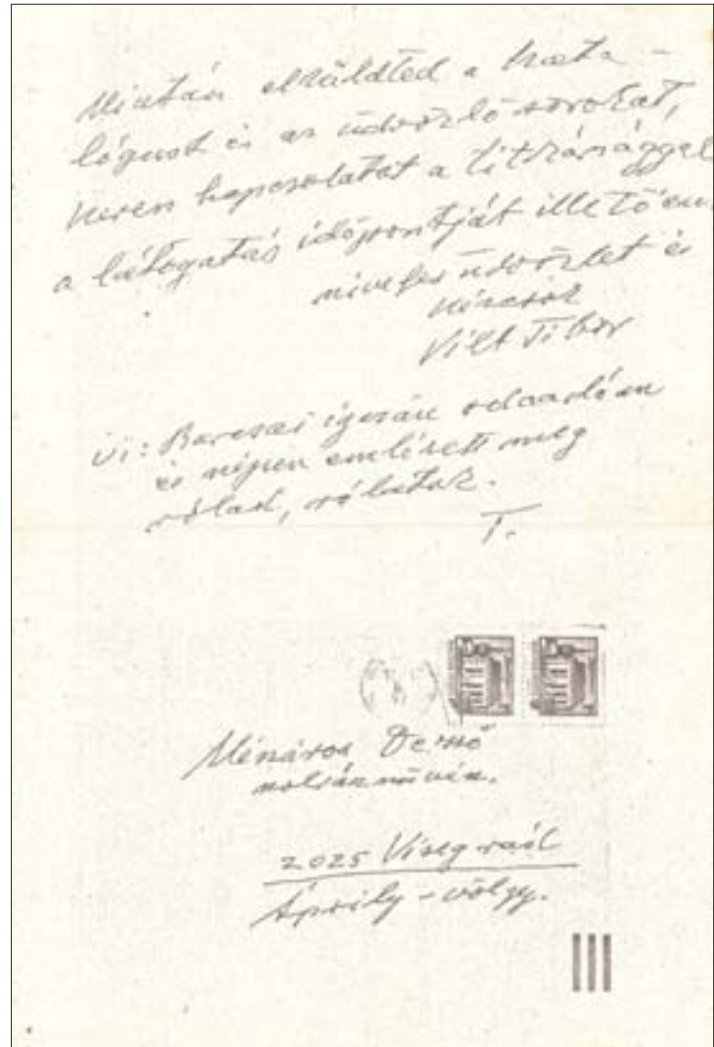 Miután elküldted a kata-
lógust és az üdvözlő sorokat,
keress kapcsolatot a titkársággal
a látogatás időpontját illetően.
szívesen üdvözöl és
Vilt Tibor
ui: Barcsai igazán odaadóan
és szépen emlékezett meg
rólad, rólatok.
T.
Mészáros Dezső
szobrászműv.
2025 Visegrád
Áprily-völgy.